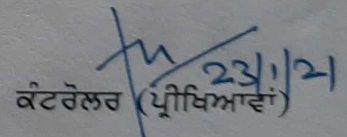 23/1/21
ਕੰਟਰੋਲਰ (ਪ੍ਰੀਖਿਆਵਾਂ)